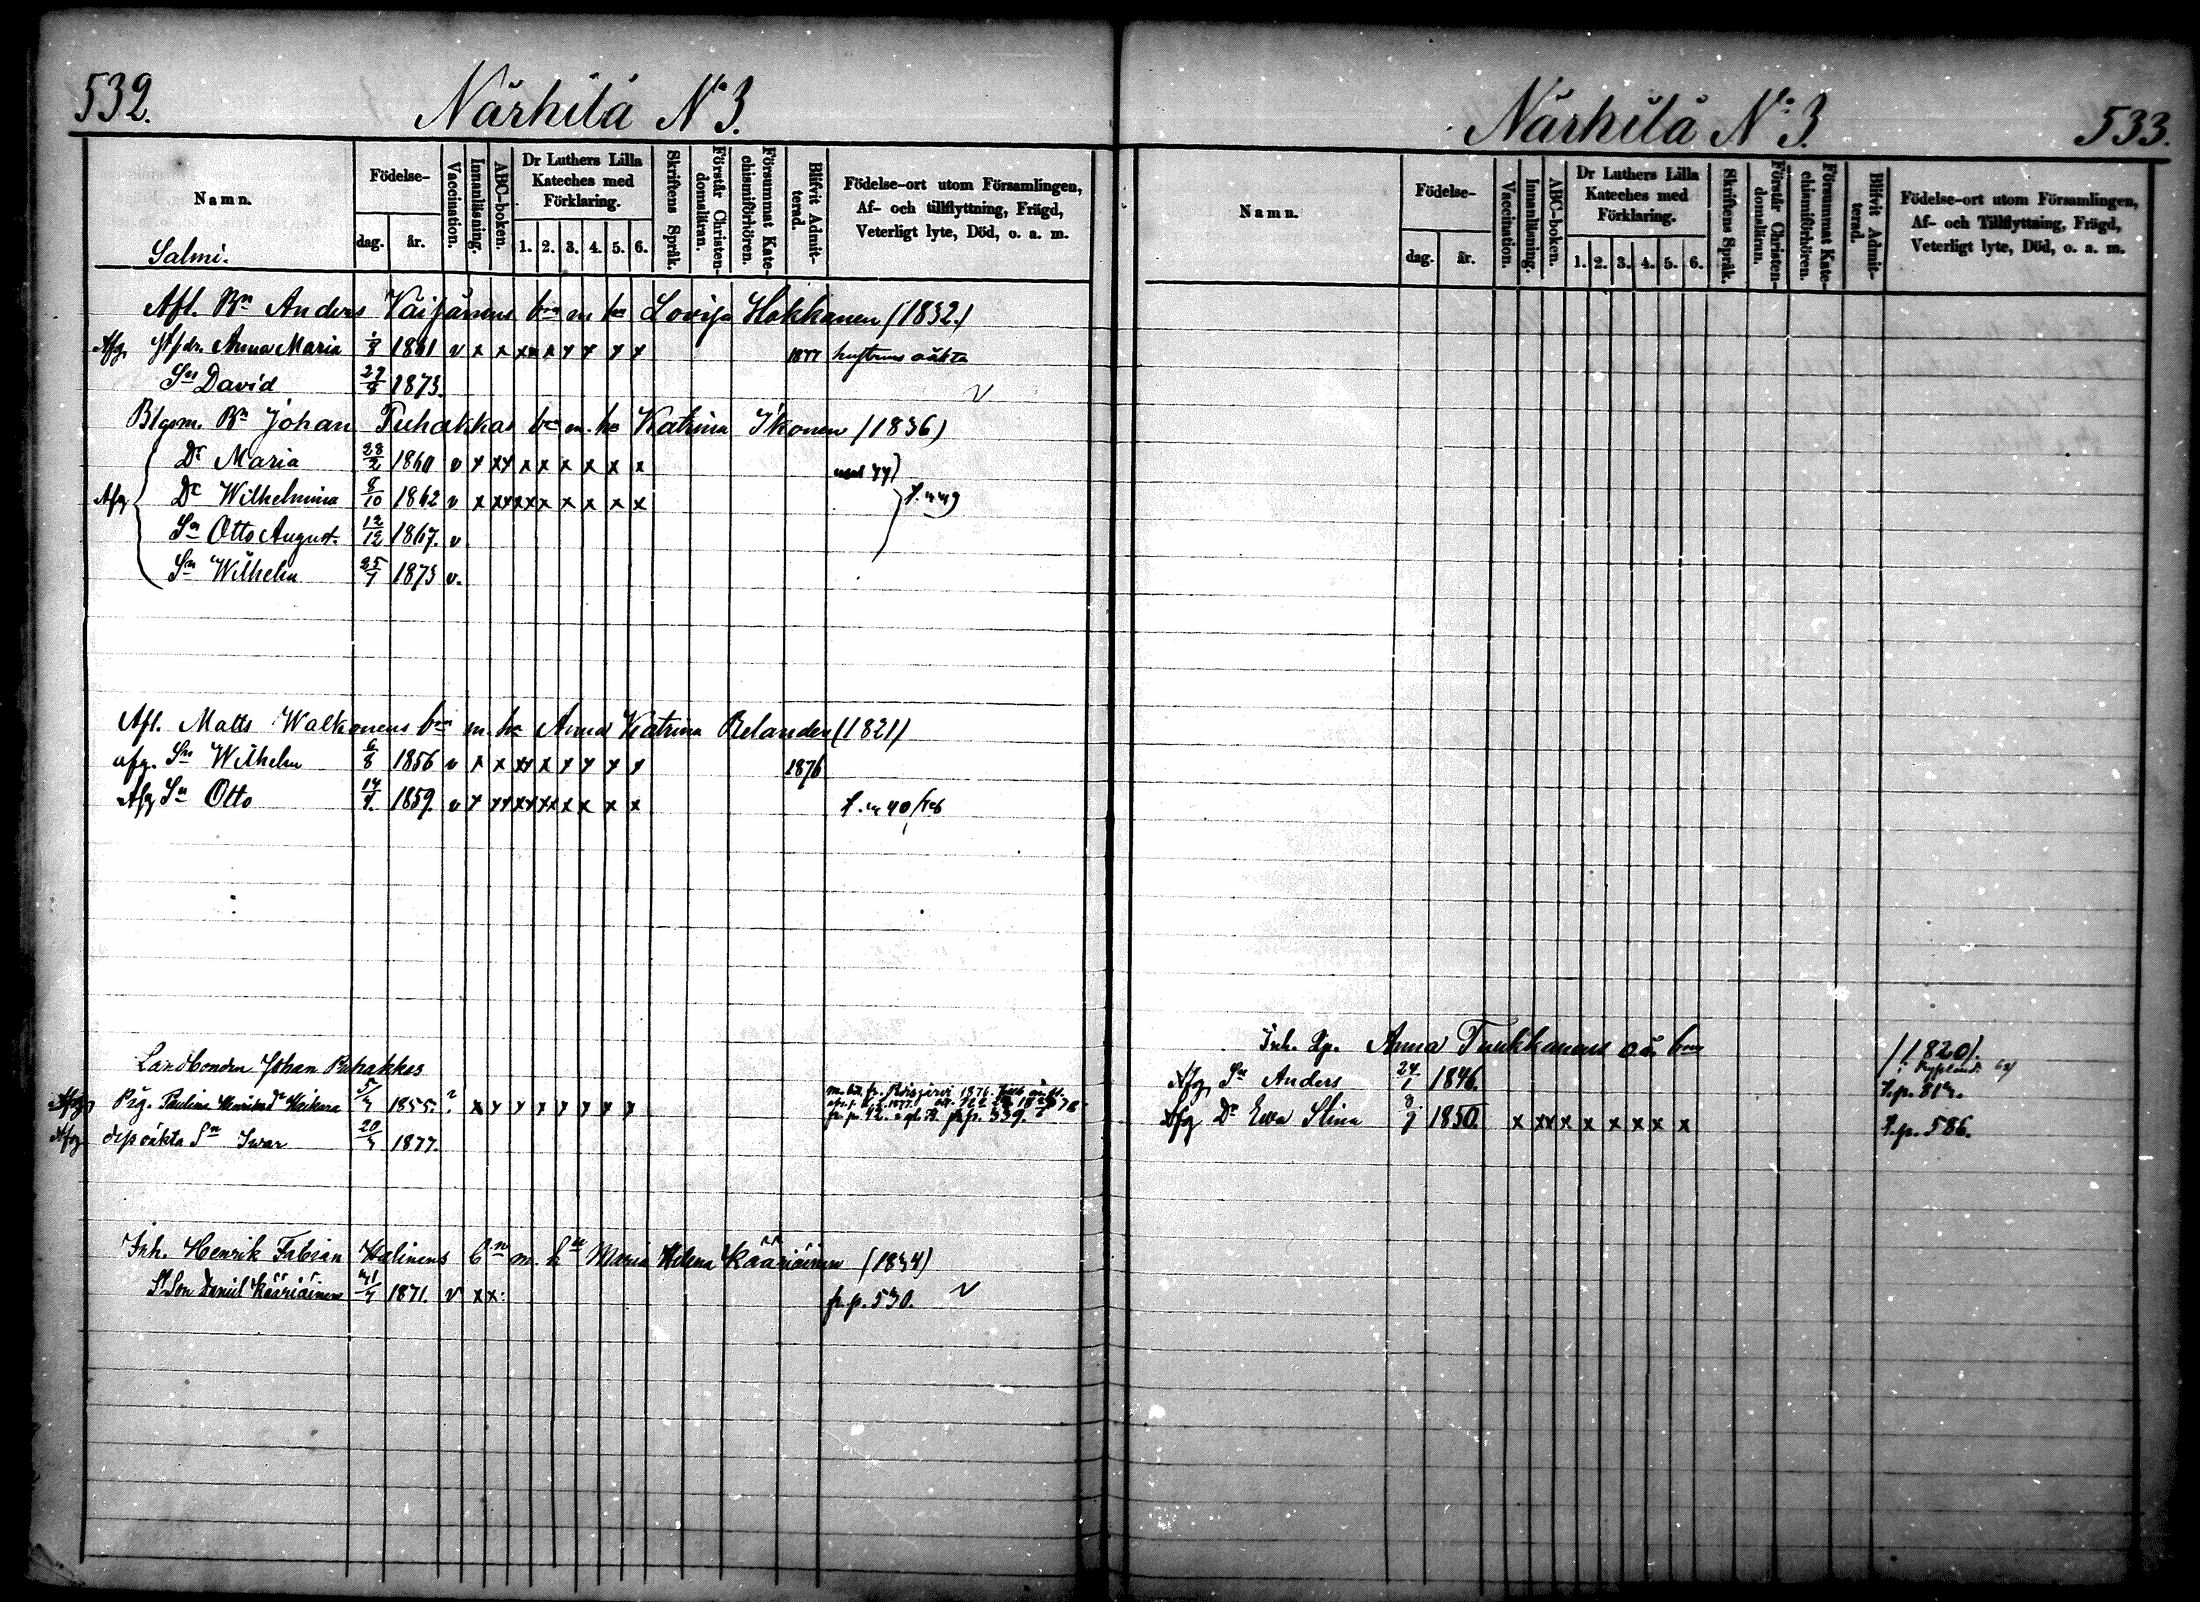 532.
Närhilä N:o 3.
Namn.
Födelse-
dag.
år.
Vaccination.
Innanläsning.
ABC-boken.
Dr Luthers Lilla
Kateches med
Förklaring.
1. 2. 3. 4. 5. 6.
Skriftens Språk.
Förstår Christen-
domsläran.
Försummat Kate-
chismiförhören.
Blifvit Admit-
terad.
Födelse-ort utom Församlingen,
Af- och tillflyttning, Frägd,
Veterligt lyte, Död, o. a. m.
Salmi.
Afl. Bn Anders Väisänens bn m h Lovisa Hakkanen (1832.)
Afg. Anna Maria 1861 v x x xx x x x x x 1877 oäkta
Sn David 27/8 1873.
Btgsm. Bn Johan Puhakkas bn m. h Katrina Ikonen (1836)
Dr Maria 28/2 1860 v x xx x x x x x x
Afg Dr Wilhelmina 8/10 1862 v x xx xx x x x x x
Sn Otto August 12/12 1867. v
Sn Wilhelm 25/7 1873 v.
Afl. Matts Walkonens bn m. h Anna Katrina Relander (1821)
afg. Sn Wilhelm 6/8 1856 v x x xx x x x x x 1876
Afg Sn Otto 1859. v x xx xx xx x x x x
Landbonden Johan Puhakkas
Afg Pig. Paulina Henriksdr 1855. ? x x x x x x x x
Afg dess oäkta Sn Iwar 1877.
Inh. Henrik Fabian Halinens bn m. hn Maria Helena Kääriäinen (1834)
Son Daniel Kääriäinen 1871. v x x.
fr. p. 530.
Närhilä N:o 3.
533.
Namn.
Födelse-
dag.
år.
Vaccination.
Innanläsning.
ABC-boken.
Dr Luthers Lilla
Kateches med
Förklaring.
1. 2. 3. 4. 5. 6.
Skriftens Språk.
Förstår Christen-
domsläran.
Försummat Kate-
chismiförhören.
Blifvit Admit-
terad.
Födelse-ort utom Församlingen,
Af- och Tillflyttning, Frägd,
Veterligt lyte, Död, o. a. m.
Inh. Anna Turkkanens oä. bn (1820).
Afg Sn Anders 24/1 1846.
Afg Dr Ewa Stina 1850. x xx x x x x x x t. p. 586.